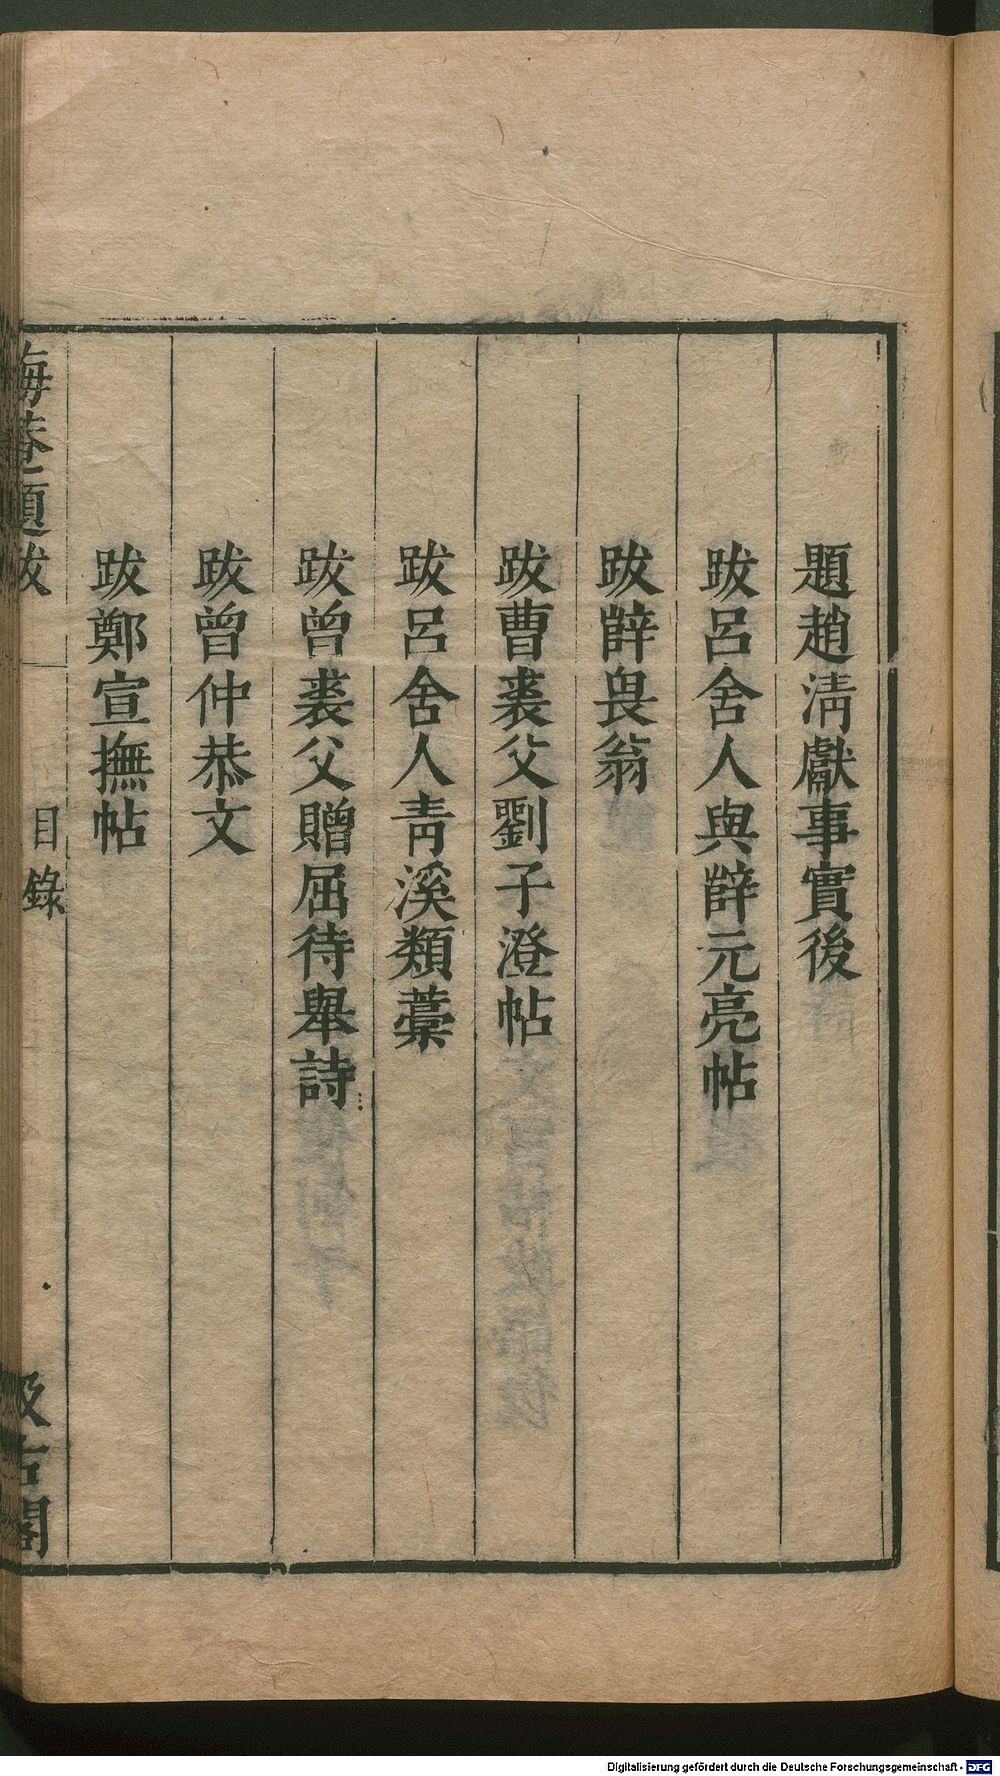 題趙淸獻事實後
跋呂舍人與薛元亮帖
跋薛畏翁
跋曹裘父劉子澄帖
跋呂舍人靑溪類藁
跋曾裘父贈屈待舉詩
跋曾仲恭文
跋鄭宣撫帖
海菴題跋
目錄
汲古閣
Digitalisierung gefördert durch die Deutsche Forschungsgemeinschaft - DFG